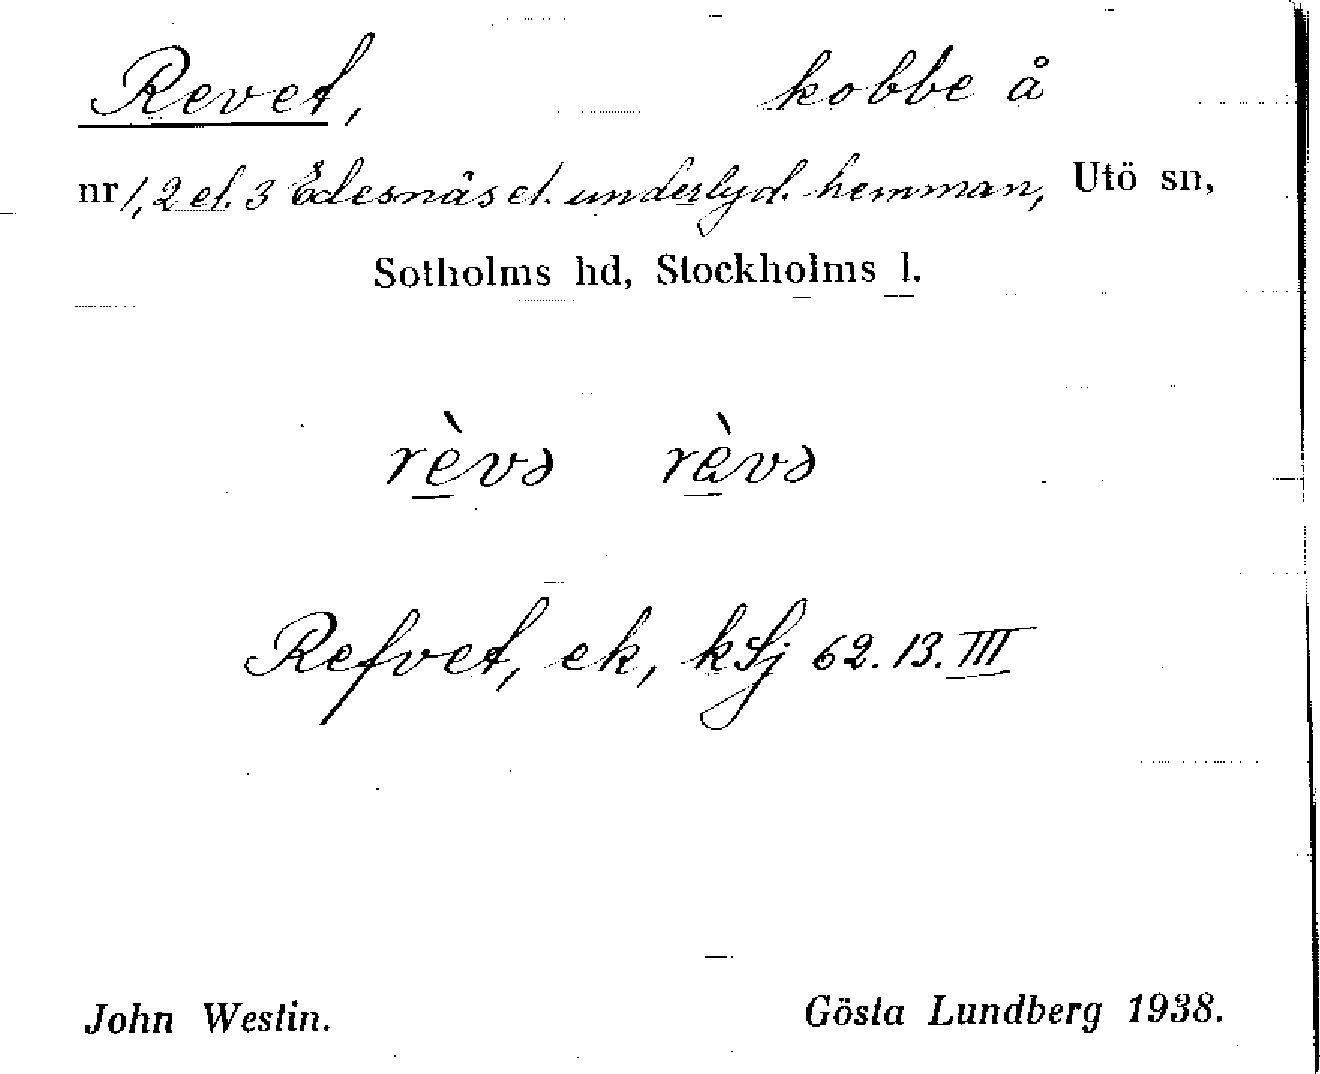 Revet, kobbe å
nr 1, 2 el. 3 Edesnäs el. underlyd. hemman, Utö sn,
Sotholms hd, Stockholms l.
rèvə rèvə
Refvet, ek, kSj 62.13.III
John Westin. Gösta Lundberg 1938.